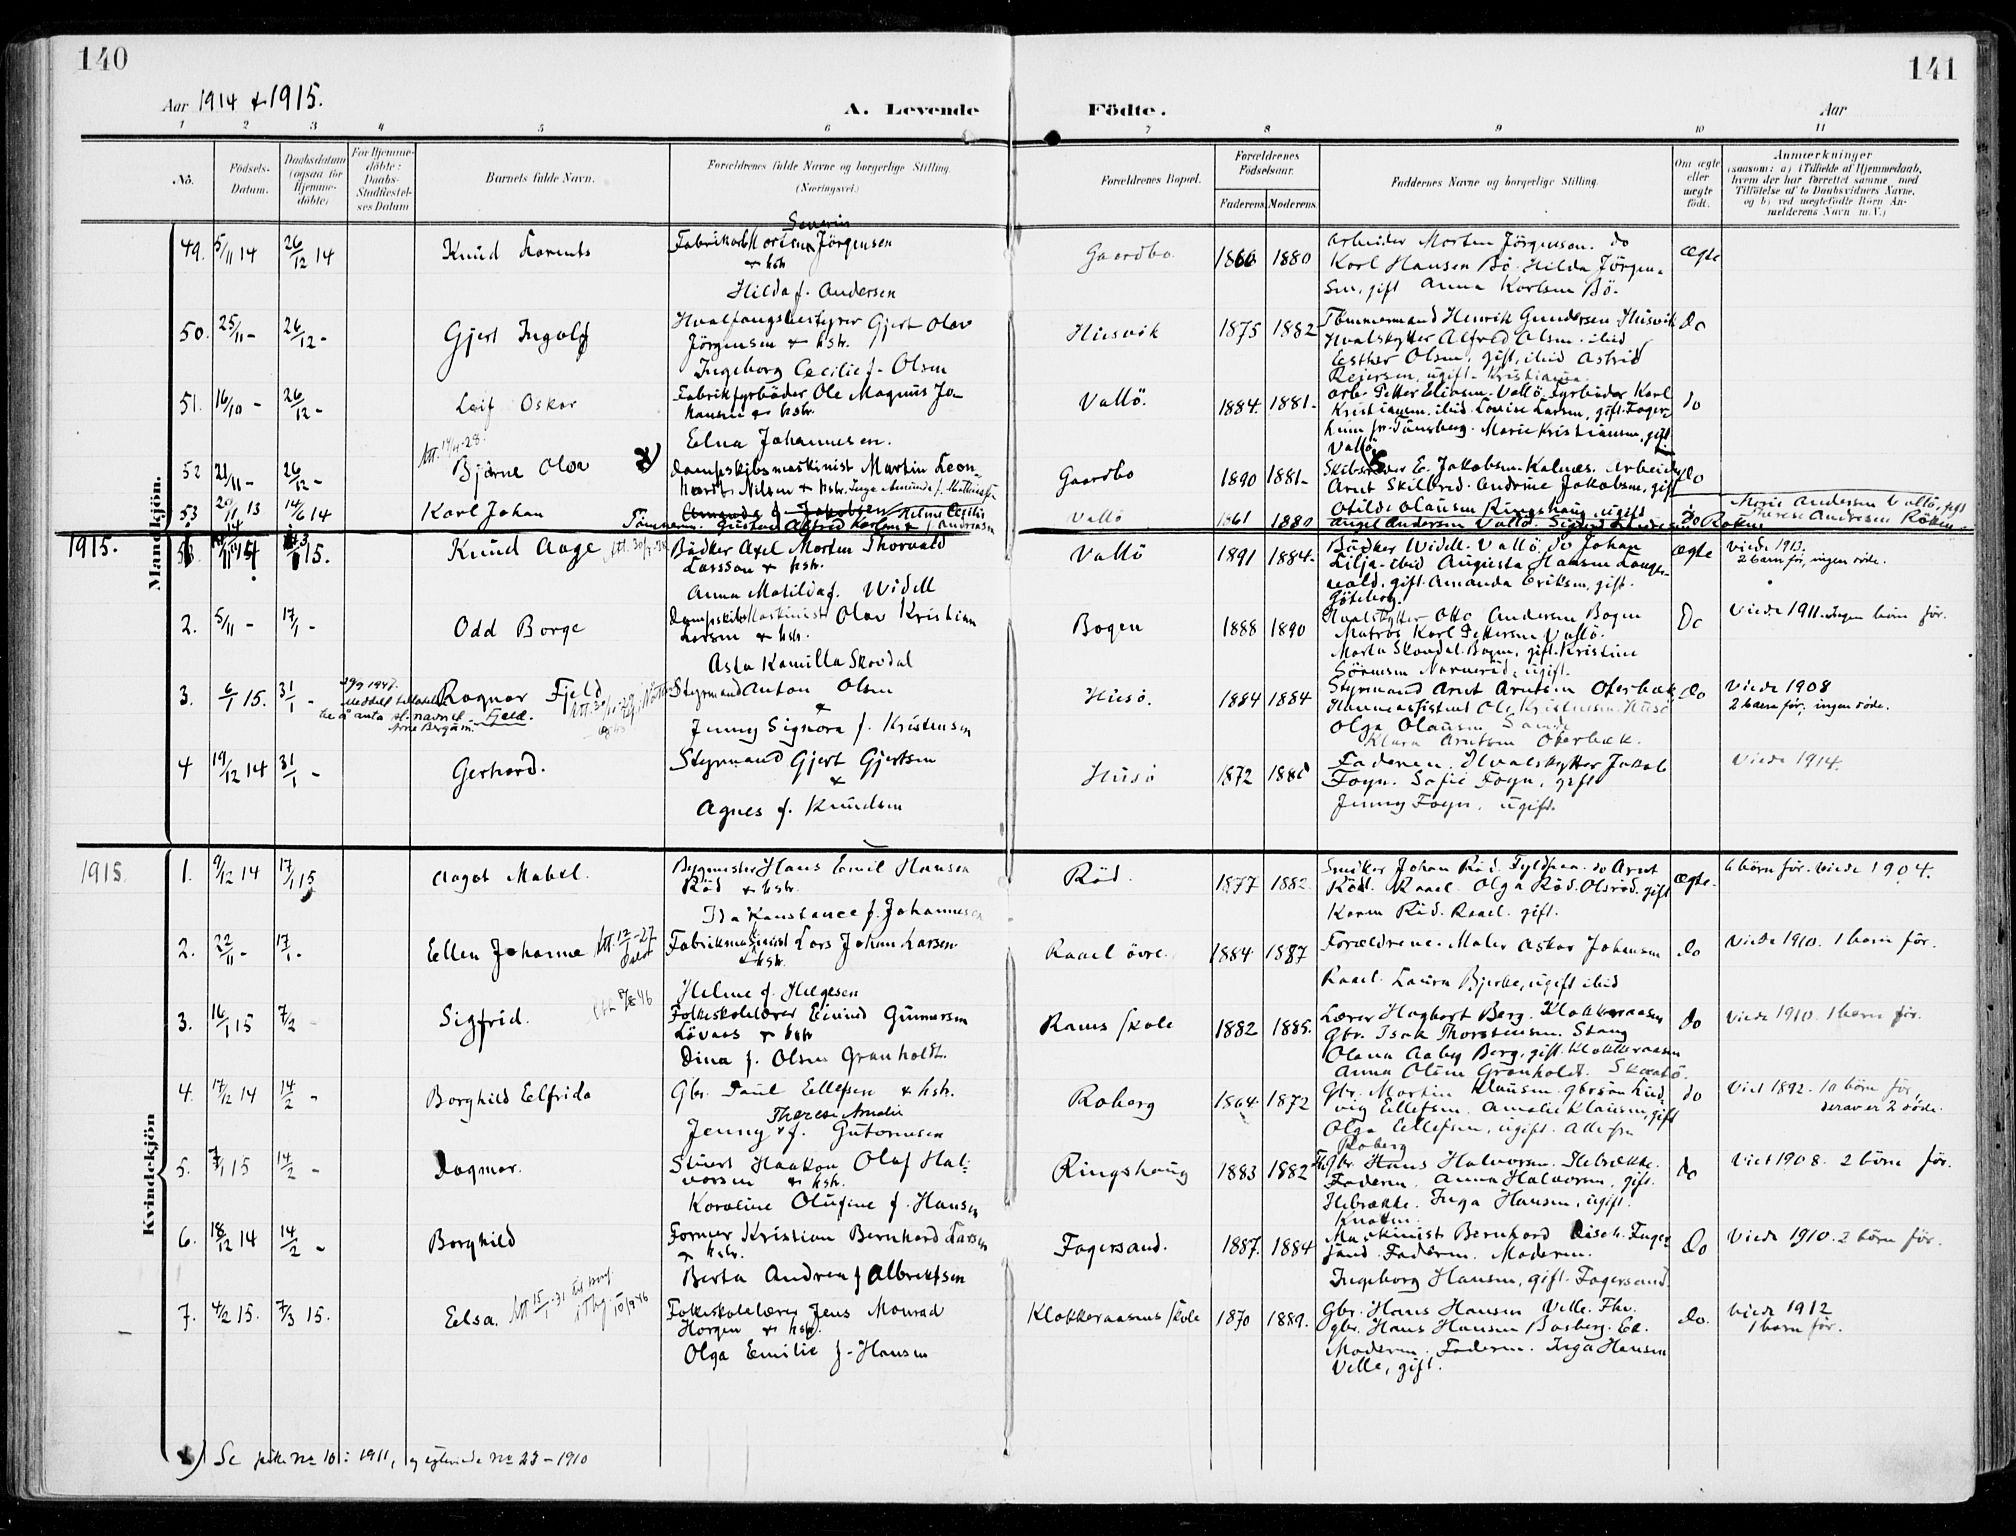 140
141
Aar 1914 & 1915.
A. Levende
Födte.
Aar
1 2 3 4 5 6 7 8 9 10 11
Nò.
Födsels-
Datum.
Daabsdatum
(ogsaa for
Hjemme-
döbte)
For Hjemme-
döbte:
Daabs-
Stadfæstel-
ses Datum
Barnets fulde Navn.
Forældrenes fulde Navne og borgerlige Stilling
(Næringsvei.)
Forældrenes Bopæl.
Forældrenes
Födselsaar.
Faderens Moderens
Faddernes Navne og borgerlige Stilling.
Om ægte
eller
uægte
födt.
Anmærkninger
(saasom: a) i Tilfælde af Hjemmedaab,
hvem der har forrettet samme med
Tilföielse af to Daabsvidners Navne,
og b) ved uægtefödte Börn An-
melderens Navn m.V.)
Mandkjön.
49. 5/11 14 26/12 14
Knud
Severin
Fabrikarb. Morten Jörgensen
& hstr
Hilda f. Andersen
Gaardbo. 1880
Arbeider Morten Jörgensen. do
Karl Hansen Bö. Hilda Jörgen-
sen, gift Anna Karlsen Bö.
Ægte
50. 25/11 - 26/12 -
Gjert Ingolf
Hvalfangstbestyrer Gjert Olav
Jörgensen & hstr.
Ingeborg Cecilie f. Olsen
Husvik 1875 1882
Tömmermand Henrik Gundersen Husvik
Hvalskytter Alfred Olsen. ibid
Esther Olsen, gift, ibid Astrid
Reiersen, ugift. Kristiania.
do
51. 16/10 - 26/12 -
Leif Oskar
Fabrikfyrböder Ole Magnus Jo-
hansen & hstr.
Edna Johannesen.
Vallö. 1884. 1881-
Arb. Petter Eliasen. Vallö. Fyrböder Karl
Kristiansen. ibid. Lovise Larsen, gift. Fager-
heim pr. Tönsberg. Marie Kristiansen, gift
Vallö.
do
52 21/11 - 26/12 -
Att. 14/4-28.
Bjarne Olav
Dampskibsmaskinist Martin Leon-
hard Nilsen & hstr. Inga Amunda f. Mathiesen
Amanda f. Jakobsen
Gaardbo 1890 1881-
E. Jakobsen. Kalnes. Arbeider
Arnt Skilbred. Andrine Jakobsen, gift
Otilde Olausen Ringshaug, ugift
do
53 20/11 13 14/6 14
Karl Johan
Tömmerm. Gustav Alfred Karlsen & Helma Cecilie f. Andreasen
Vallö 1861 1880
Angel Andersen Vallö. Sigurd Andersen Röken
do
Marie Andersen Vallö, gift
Therese Andersen Röken
1915.
15.
Knud Aage
Bödker Axel Morten Thorvald
Larsson & hstr.
Anna Matilda f. Widell
Vallö 1891 1884-
Bödker Widell. Vallö. do Johan
Lilja. ibid Augusta Hansen Langes-
vold, gift. Amanda Eriksen, gift.
Göteborg.
ægte
Viede 1913.
2 barn för, ingen döde.
2. 5/11 - 17/1 -
Odd Borge
Dampskibsmaskinist Olav Kristian
Larsen & hstr.
Asta Kamilla Skovdal
Bogen 1888 1890
Hvalskytter Otto Andersen Bogen
Matros Karl Pettersen Vallö.
Marta Skovdal. Bogen, gift. Kristine
Sörensen Narverud, ugift.
Do
Viede 1911. Ingen barn för.
3. 6/1 15. 31/1 -
til å anta sl.navnet Fjeld.
Arne Bergum.
Ragnar Fjeld
Styrmand Anton Olsen
&
Jenny Signora f. Kristensen
Husö. 1884 1884
Styrmand Arnt Arntsen Oterbæk
Ole Kristensen. Husö
Olga Olausen Sande
Klara Arntsen Oterbæk.
do
Viede 1908
2 barn för, ingen döde.
4 19/12 14 31/1 -
Gerhard.
Styrmand Gjert Gjertsen
&
Agnes f. Knudsen
Husö 1872
Faderen. Hvalskytter Jakob
Foyn. Sofie Foyn, gift
Jenny Foyn, ugift.
Viede 1914.
Kvindekjön
1915
1. 9/12 14 17/1 15
Aagot Mabel.
Bygmester Hans Emil Hansen
Röd & hstr.
Ida Konstance f. Johannesen
Röd. 1877 1882
Snedker Johan Röd. do Arnt
Röd. Raael. Olga Röd. Olsröd. gift
Karen Röd. Raael. gift.
Ægte.
6 börn för. Viede 1904.
2. 22/11 - 17/1 -
Ellen Johanne
Att. 12/1-27
Fabrikmaskinist Lars Johan Larsen
& hstr.
Helene f. Helgesen
Raael övre. 1884 1887
Forældrene. Maler Askar Johansen
Raael. Laura Bjerke, ugift ibid
do
Viede 1910. 1 barn för.
3. 16/1 15 7/2 -
Sigfrid.
Folkeskolelærer Eivind Gunnersen
Lövaas & hstr
Dina f. Olsen Granholdt.
Rams skole 1882 1885.
Lærer Hagbart Berg. Klokkeraasen
Gbr. Isak Thorstensen. Stang
Olana Aaby Berg, gift. Klokkeraasen
Anna Olsen Granholdt. Skaatö.
do
Viede 1910. 1 barn för.
4. 17/12 14 14/2 -
Borghild Eelfrida
Gbr. Paul Ellefsen & hstr.
Therese Amalie
Jenny f. Gutormsen
Roberg 1864 1872
Gbr. Martin Klausen. gbrsön Lud-
vig Ellefsen. Amalie Klausen, gift
Olga Ellefsen, ugift. Alle fra
Roberg
do
Viet 1892. 10 börn för,
derav er 2 döde.
5. 7/1 15 14/2 -
Dagmar.
Stuert Haakon Olaf Hal-
vorsen & hstr.
Karoline Olufine f. Hansen
Ringshaug 1883 1882
Fhv. gbr. Hans Halvorsen. Slebrække.
Faderen. Anna Halvorsen, gift.
Slebrække. Inga Hansen, ugift.
Knatten.
do
Viet 1908. 2 börn för.
6. 18/12 14 14/2 -
Borghild
Former Kristian Bernhard Larsen
& hstr.
Berta Andrea f Albrektsen
Fagersand. 1887. 1884
Maskinist Bernhard Disch. Fager-
sand. Faderen. Moderen.
Ingeborg Hansen, gift. Fagersand.
Do
Viede 1910. 2 börn för.
7. 4/2 15. 7/3 15.
Eelsa.
Folkeskolelærer Jens Monrad
Horgen & hstr.
Olga Emilie f. Hansen
Klokkeraasens skole 1870 1889.
Gbr. Hans Hansen Velle. Fhv.
gbr. Hans Hansen Basberg. Ed.
Moderen. Faderen. Inga Hansen
Velle, gift.
do.
Viede 1912
1 barn för.
x) Se No 10: 1911, og No 23 - 1910